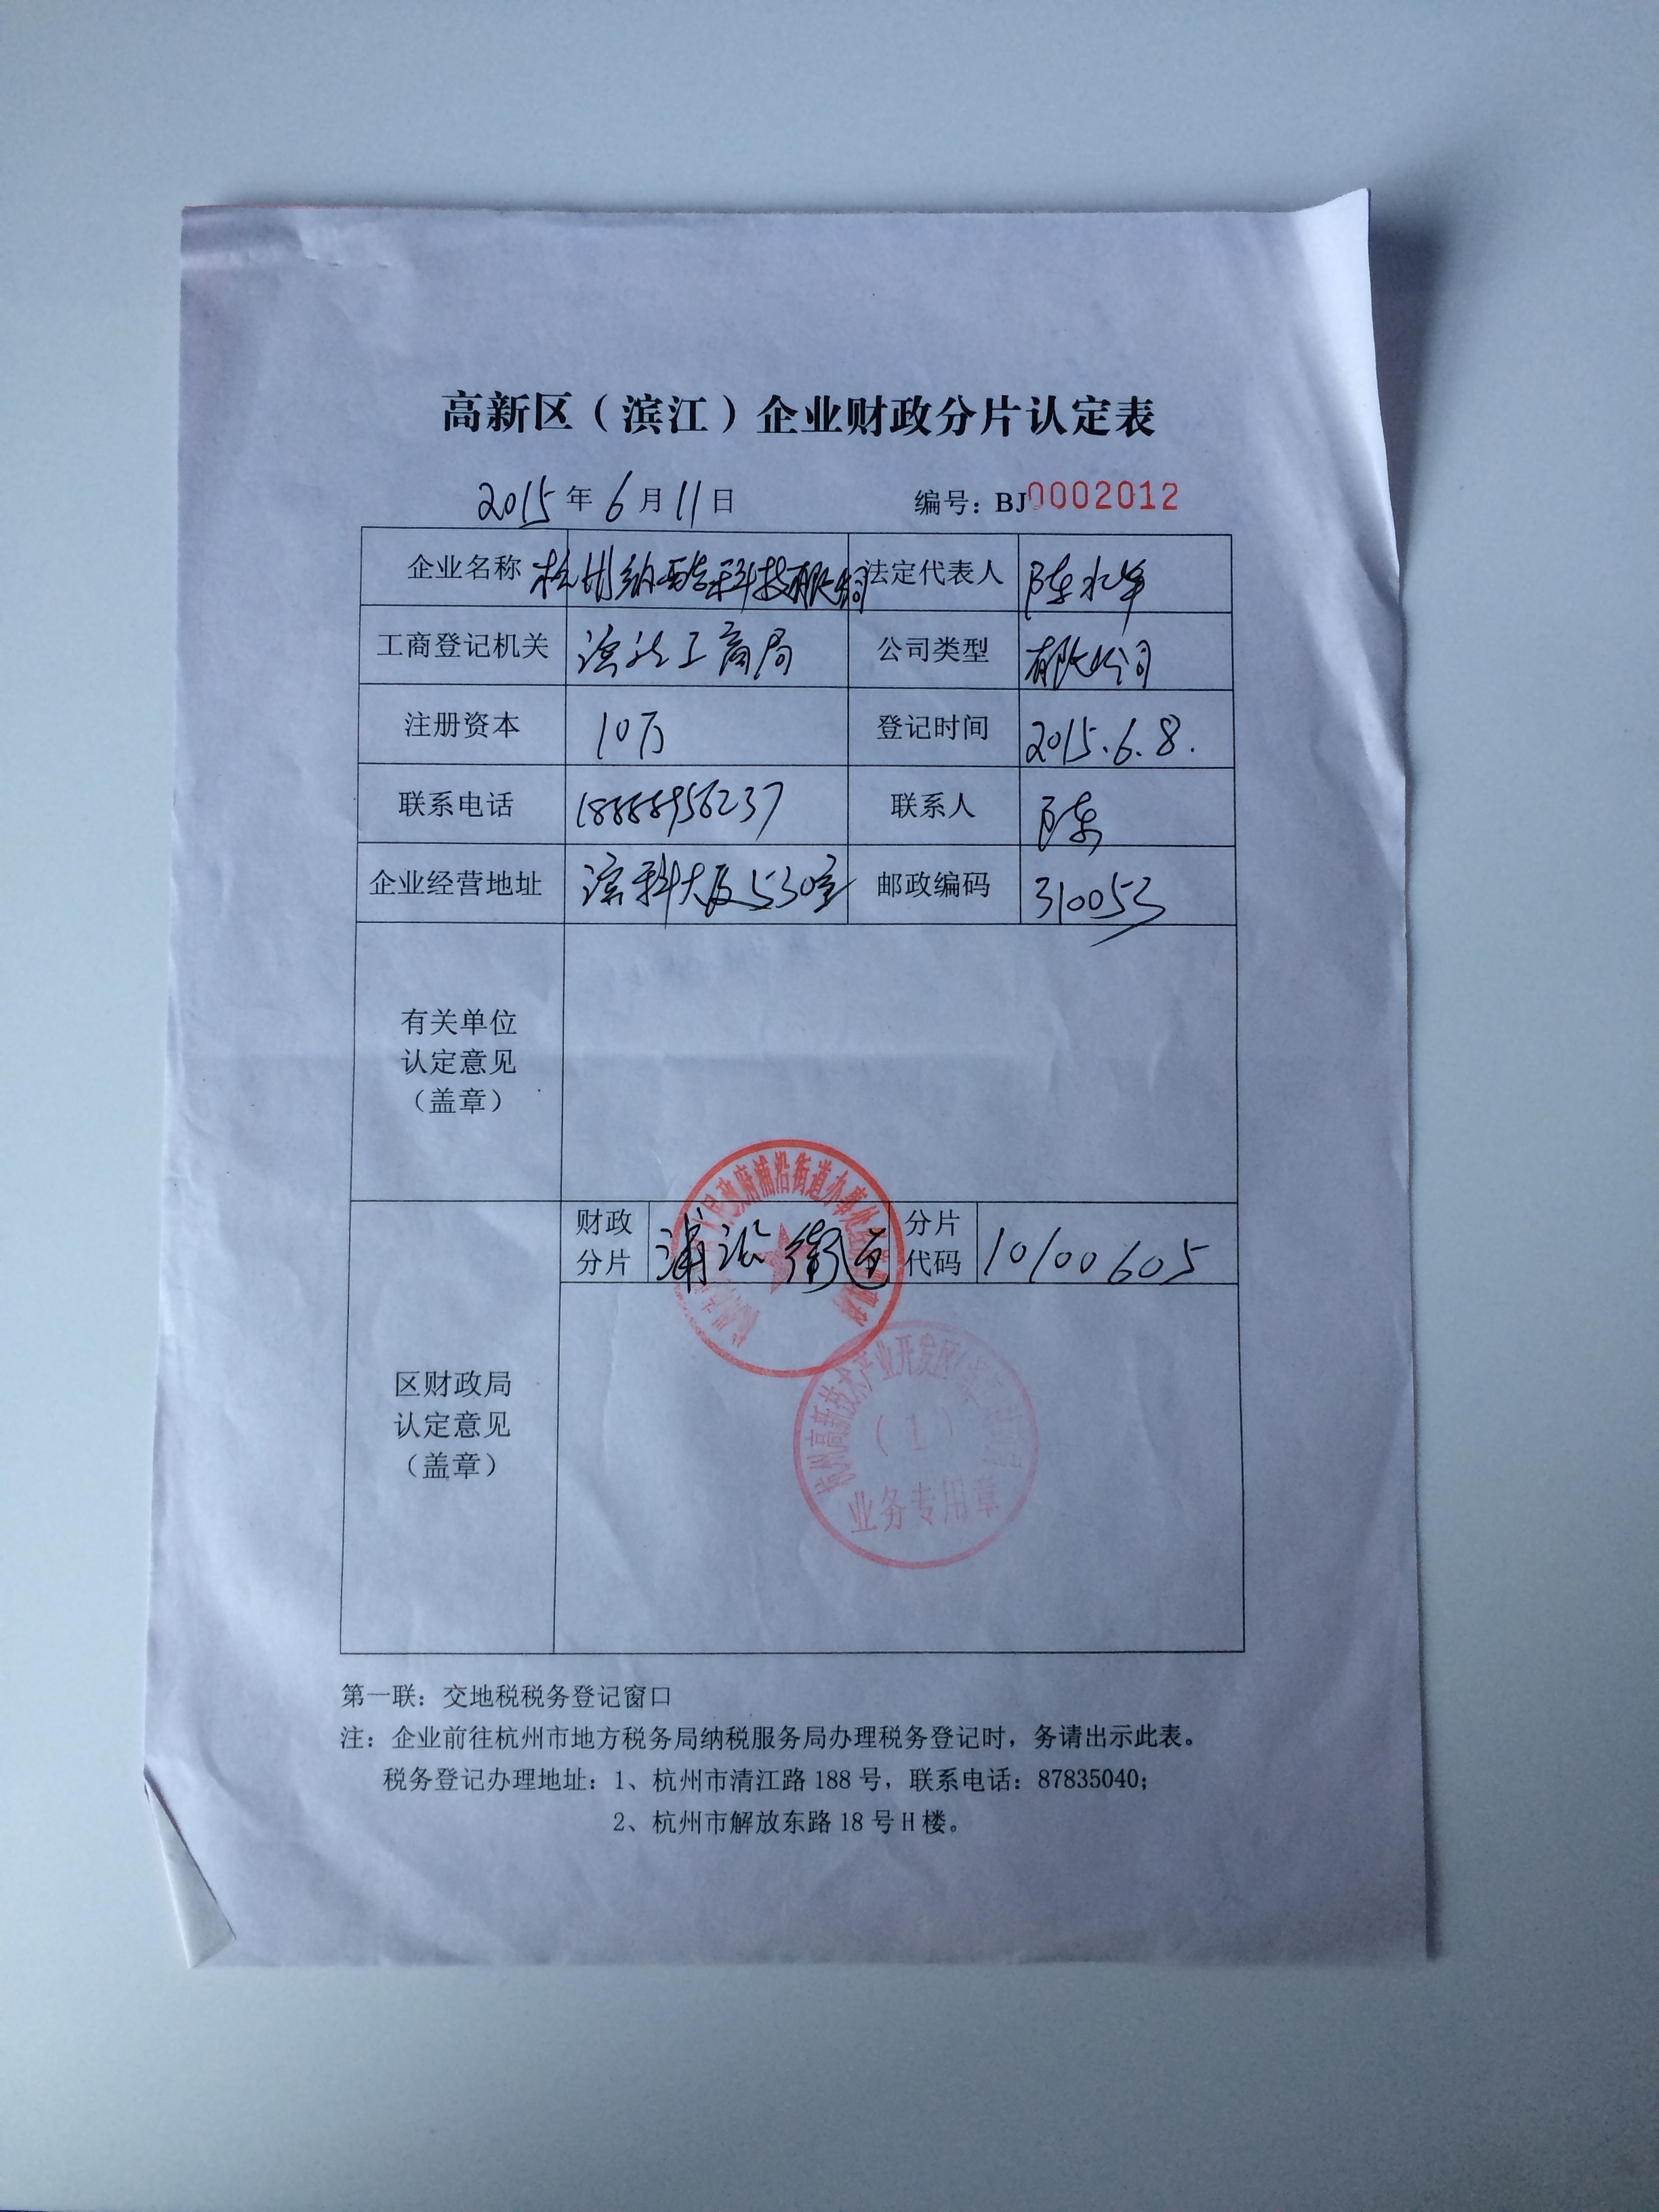 高新区（滨江）企业财政分片认定表
2015年6月11日 编号：BJ0002012
企业名称 杭州纳酷科技有限公司 法定代表人 陈水华
工商登记机关 滨江工商局 公司类型 有限公司
注册资本 10万 登记时间 2015.6.8.
联系电话 18888956237 联系人 陈
企业经营地址 滨科大厦530室 邮政编码 310053
有关单位
认定意见
（盖章）
财政
分片
浦沿街道
分片
代码
10100605
人民政府浦沿街道办事处
区财政局
认定意见
（盖章）
杭州高新技术产业开发区
（1）
业务专用章
第一联：交地税税务登记窗口
注：企业前往杭州市地方税务局纳税服务局办理税务登记时，务请出示此表。
税务登记办理地址：1、杭州市清江路188号，联系电话：87835040；
2、杭州市解放东路18号H楼。